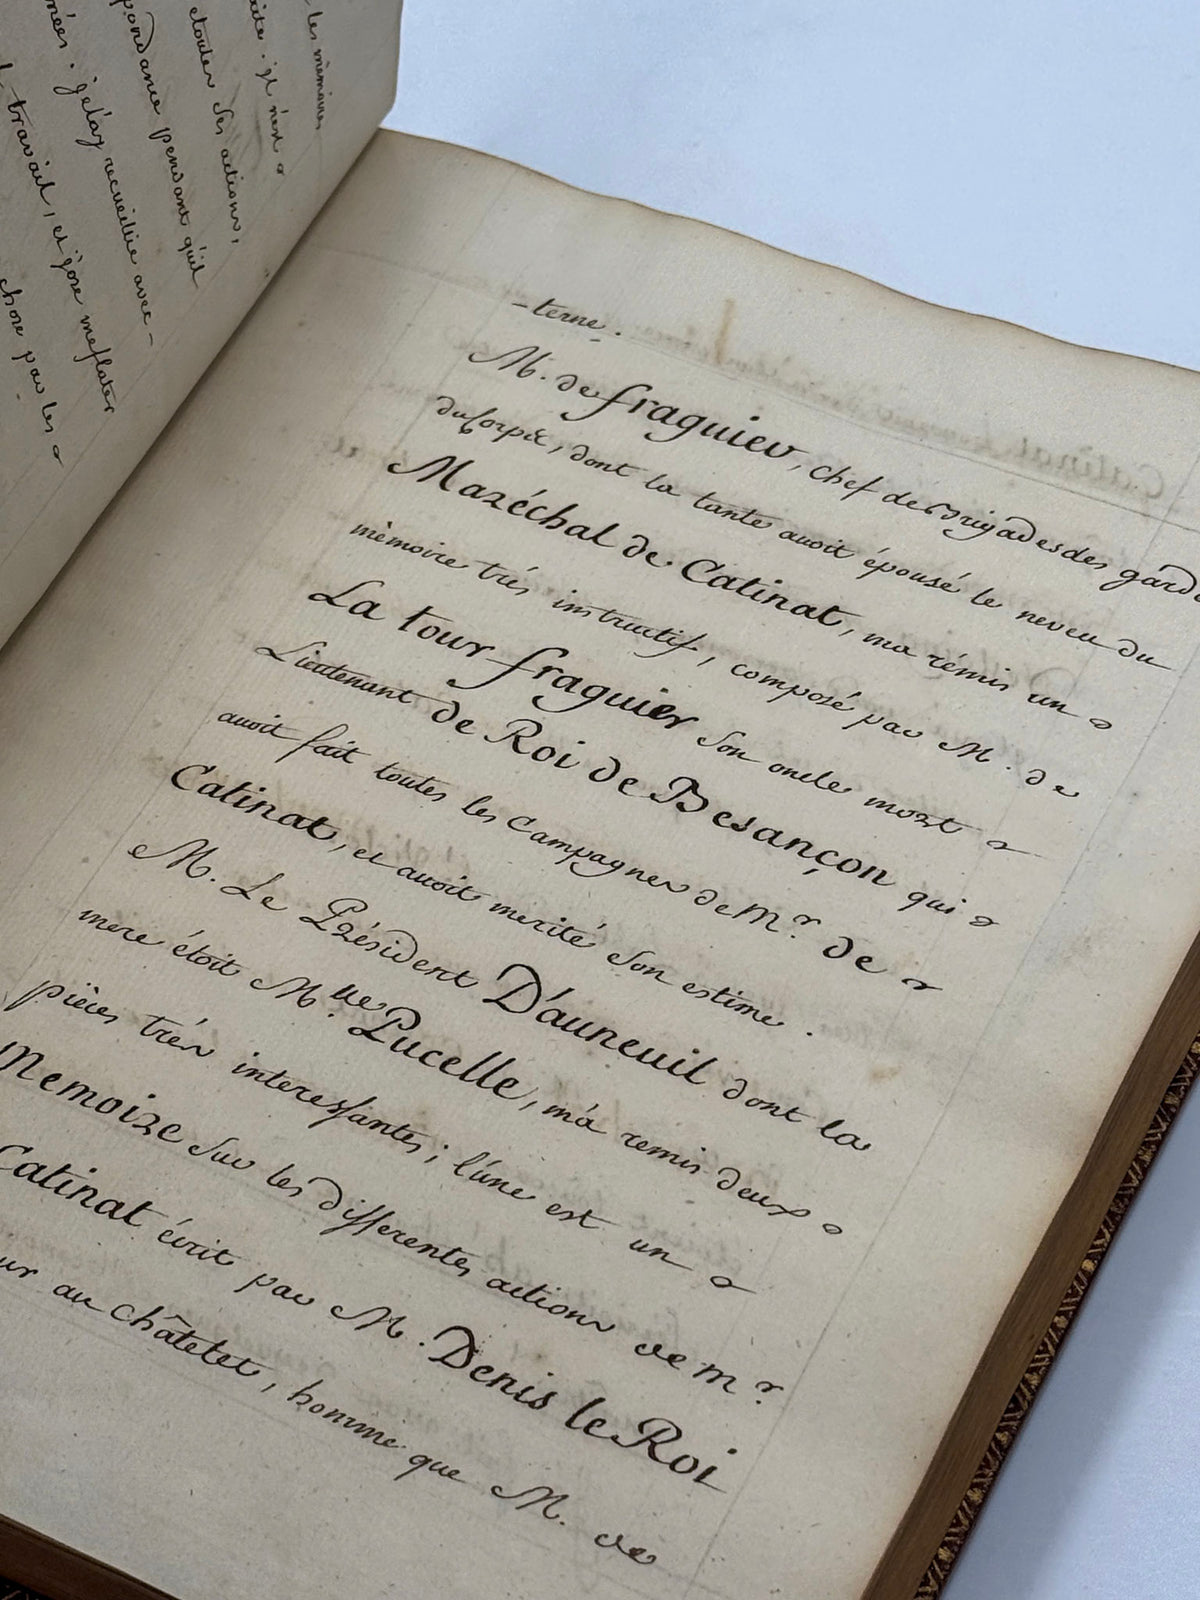 les mémoires
il n'est
ses actions,
pendant qu'il
mées. je l'ay recueillie avec
travail, et j'ose me flater
chose par les
-terne.
M. de fraguier, chef de Brigades des garde
du Corps, dont la tante avoit épousé le neveu du
Maréchal de Catinat, ma rémis un
mèmoire trés instructif, composé par M. de
La tour fraguier son oncle mort
Lieutenant de Roi de Besançon qui
avoit fait toutes les Campagnes de Mr. de
Catinat, et avoit merité son estime.
M. Le Président D'auneuil dont la
mere étoit M.lle Pucelle, m'a remis deux
pièces trés interessantes; l'une est un
Memoire sur les differentes actions de Mr
Catinat écrit par M. Denis le Roi
ur au Châtelet, homme que M. de